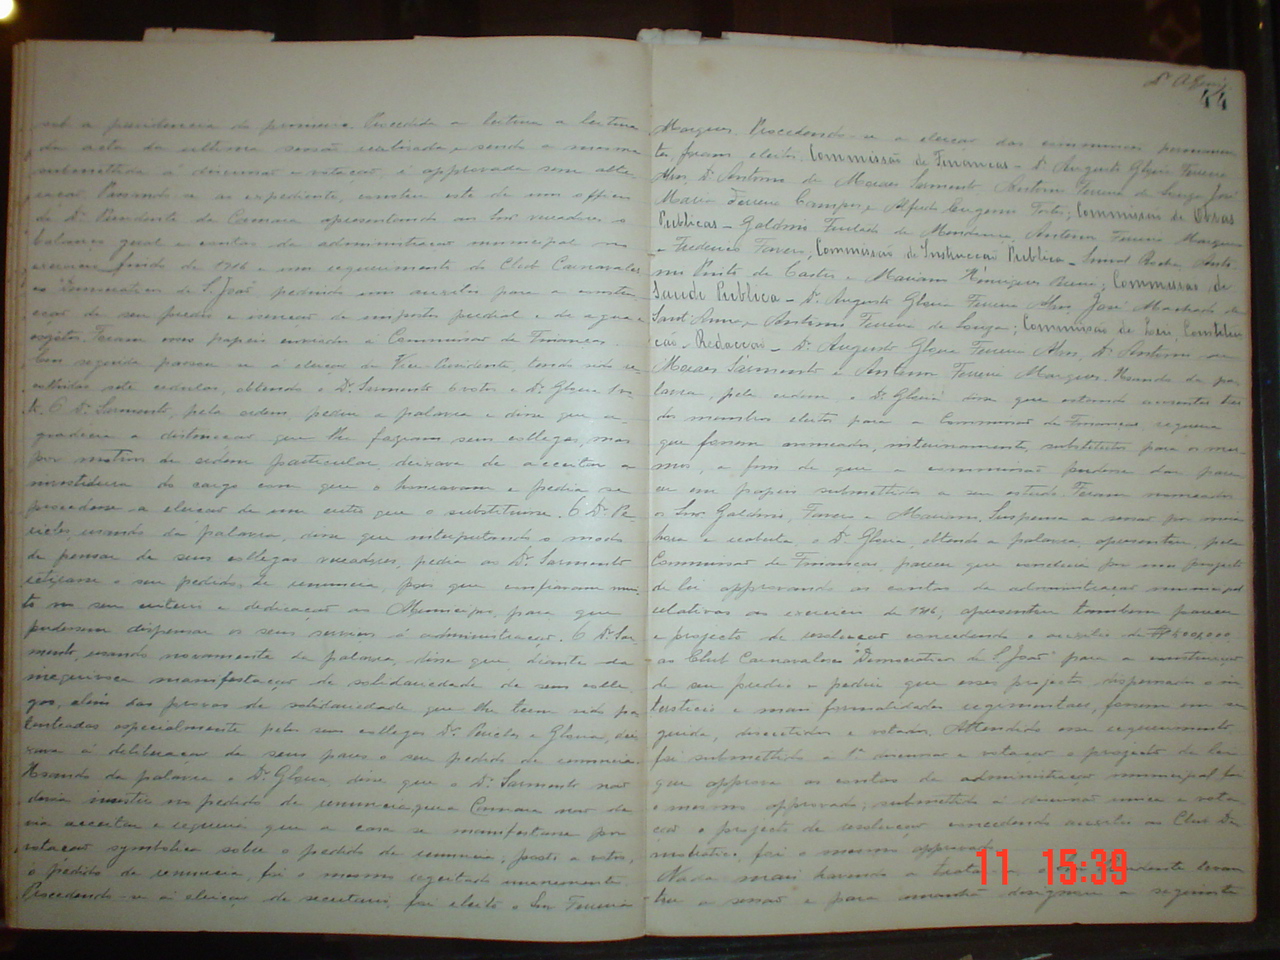 sob a presidencia do primeiro. Procedida a leitura a leitura
da acta da ultima sessão realizada e sendo a mesma
submettida á discussão e votação, é approvada sem alte-
ração. Passando-se ao expediente constou este de um officio
do Dr. Presidente da Camara apresentando aos Snrs. vereadores o
balanço geral e contas da administração municipal no
exercicio findo de 1916 e um requerimento do Club Carnavales-
co "Democraticos de S. João" pedindo um auxilio para a constru-
cção de seu predio e isenção de impostos predial e de agua e
exgotos. Foram esses papeis enviados á Commissão de Finanças.
Em seguida passou-se á eleição de Vice-Presidente, tendo sido re-
colhidas sete cedulas, obtendo o Dr. Sarmento 6 votos e Dr. Gloria 1 vo-
to. O Dr. Sarmento, pela ordem, pediu a palavra e disse que a-
gradecia a distincção que lhe faziam seus collegas, mas
por motivos de ordem particular, deixava de acceitar a
investidura do cargo com que o honravam e pedia se
procedesse a eleição de um outro que o substituisse. O Dr. Pe-
ricles, usando da palavra, disse que interpretando o modo
de pensar de seus collegas vereadores, pedia ao Dr. Sarmento
retirasse o seu pedido de renuncia, pois que confiavam mui-
to no seu criterio e dedicação ao Municipio, para que
podessem dispensar os seus serviços á administração. O Dr. Sar-
mento, usando novamente da palavra, disse que, diante da
inequivoca manifestação de solidariedade de seus colle-
gas, além das provas de solidariedade que lhe teem sido pa-
tenteadas especialmente pelos seus collegas Drs. Pericles e Gloria, dei-
xava á deliberação de seus pares o seu pedido de renuncia.
Usando da palavra o Dr. Gloria, disse que o Dr. Sarmento não
devia insistir no pedido de renuncia que a Camara não de-
via acceitar e requeria que a casa se manifestasse por
votação symbolica sobre o pedido de renuncia; posto a votos,
o pedido de renuncia, foi o mesmo regeitado unanimemente.
Procedendo-se á eleição de secretario, foi eleito o Snr. Ferreira
44
Marques. Procedendo-se a eleição das commissões permanen-
tes, foram eleitos: Commissão de Finanças - Dr. Augusto Gloria Ferreira
Alves, Dr. Antonio de Moraes Sarmento, Antonio Ferreira de Souza, José
Maria Ferreira Campos e Alfredo Eugenio Fortes; Commissão de Obras
Publicas - Galdino Furtado de Mendonça, Antonio Ferreira Marques
e Frederico Ferreira; Commissão de Instrucção Publica - Rocha, Anto-
nio Pinto de Castro e Mariano Henriques; Commissão de
Saude Publica - Dr. Augusto Gloria Ferreira Alves, José Machado de
Sant'Anna e Antonio Ferreira de Souza; Commissão de Leis, Constitui-
ção e Redacção - Dr. Augusto Gloria Ferreira Alves, Dr. Antonio de
Moraes Sarmento e Antonio Ferreira Marques. Usando da pa-
lavra, pela ordem, o Dr. Gloria disse que estando ausentes tres
dos membros eleitos para a Commissão de Finanças, requeria
que fossem nomeados, interinamente, substitutos para os mes-
mos, a fim de que a commissão podesse dar pare-
cer em papeis submettidos a seu estudo. Foram nomeados
os Snrs. Galdino, Ferreira e Mariano. Suspensa a sessão por meia
hora e reaberta o Dr. Gloria, obtendo a palavra, apresentou, pela
Commissão de Finanças, parecer que concluia por um projecto
de lei approvando as contas da administração municipal
relativas ao exercicio de 1916; apresentou tambem parecer
e projecto de resolução concedendo o auxilio de
ao Club Carnavalesco "Democraticos de S. João" para a construcção
de seu predio e pediu que esses projectos, dispensados o in-
tersticio e mais formalidades regimentaes, fossem em se-
guida, discutidos e votados. Attendido esse requerimento,
foi submettido a 1ª discussão e votação o projecto de lei
que approva as contas da administração municipal, foi
o mesmo approvado; submettido á discussão unica e vota-
ção o projecto de resolução concedendo auxilio ao Club De-
mocraticos, foi o mesmo approvado.
Nada mais havendo a tratar, o Snr. Presidente levan-
tou a sessão e para amanhã designou a seguinte
11 15:39